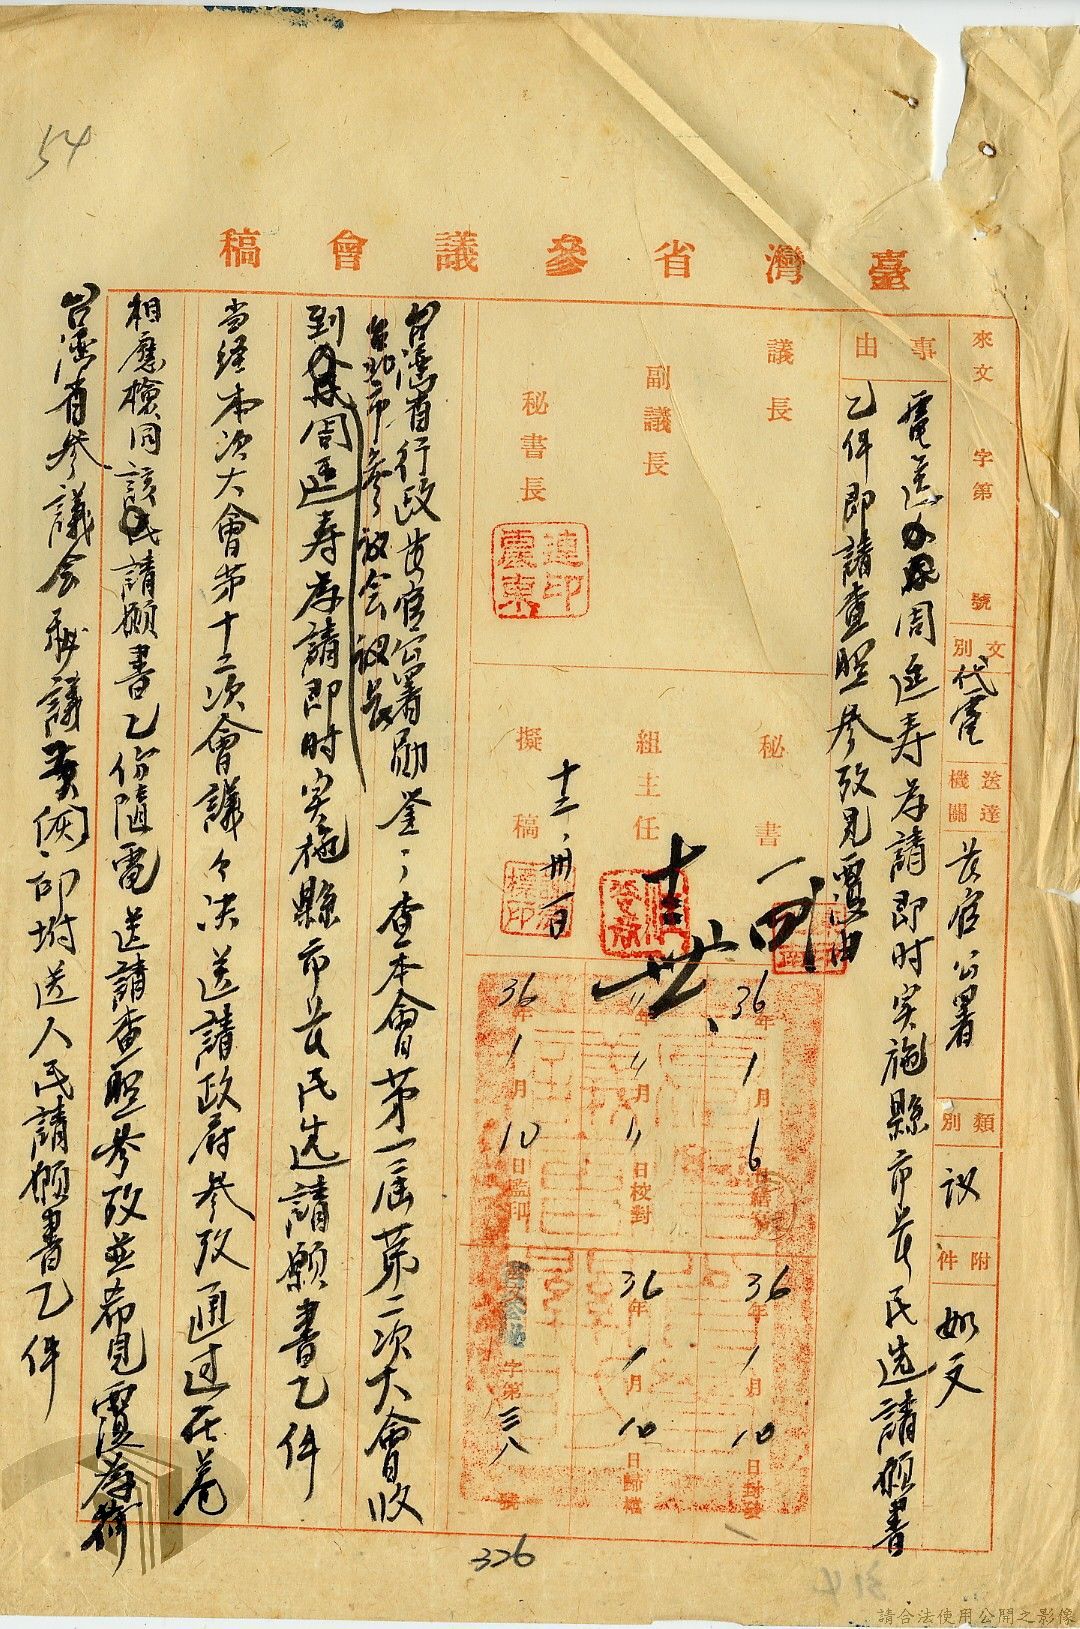 54
臺灣省參議會稿
來文 字第 號
文別 代電
送達機關 長官公署
類別 议
附件 如文
事由
電送 周延寿為請即时实施縣市長民选請願書
乙件即請查照参攷見覆由
議長
副議長
秘書長
連震東印
秘書
組主任
擬稿
十二、卅一日
36年1月6日
〃年〃月〃日校對
36年1月10日監印
36年1月10日封發
36年1月10日歸檔
字第三八號
台湾省行政長官公署勛鉴：查本會第一屆第二次大會收
台北市参议会议長
到 周延寿為請即时实施縣市長民选請願書乙件
当经本次大會第十二次會議々决送請政府参攷通过在卷
相應檢同該 請願書乙份随電送請查照参攷並希見覆為荷
台湾省参議会秘議 印坿送人民請願書乙件
326
314
請合法使用公開之影像